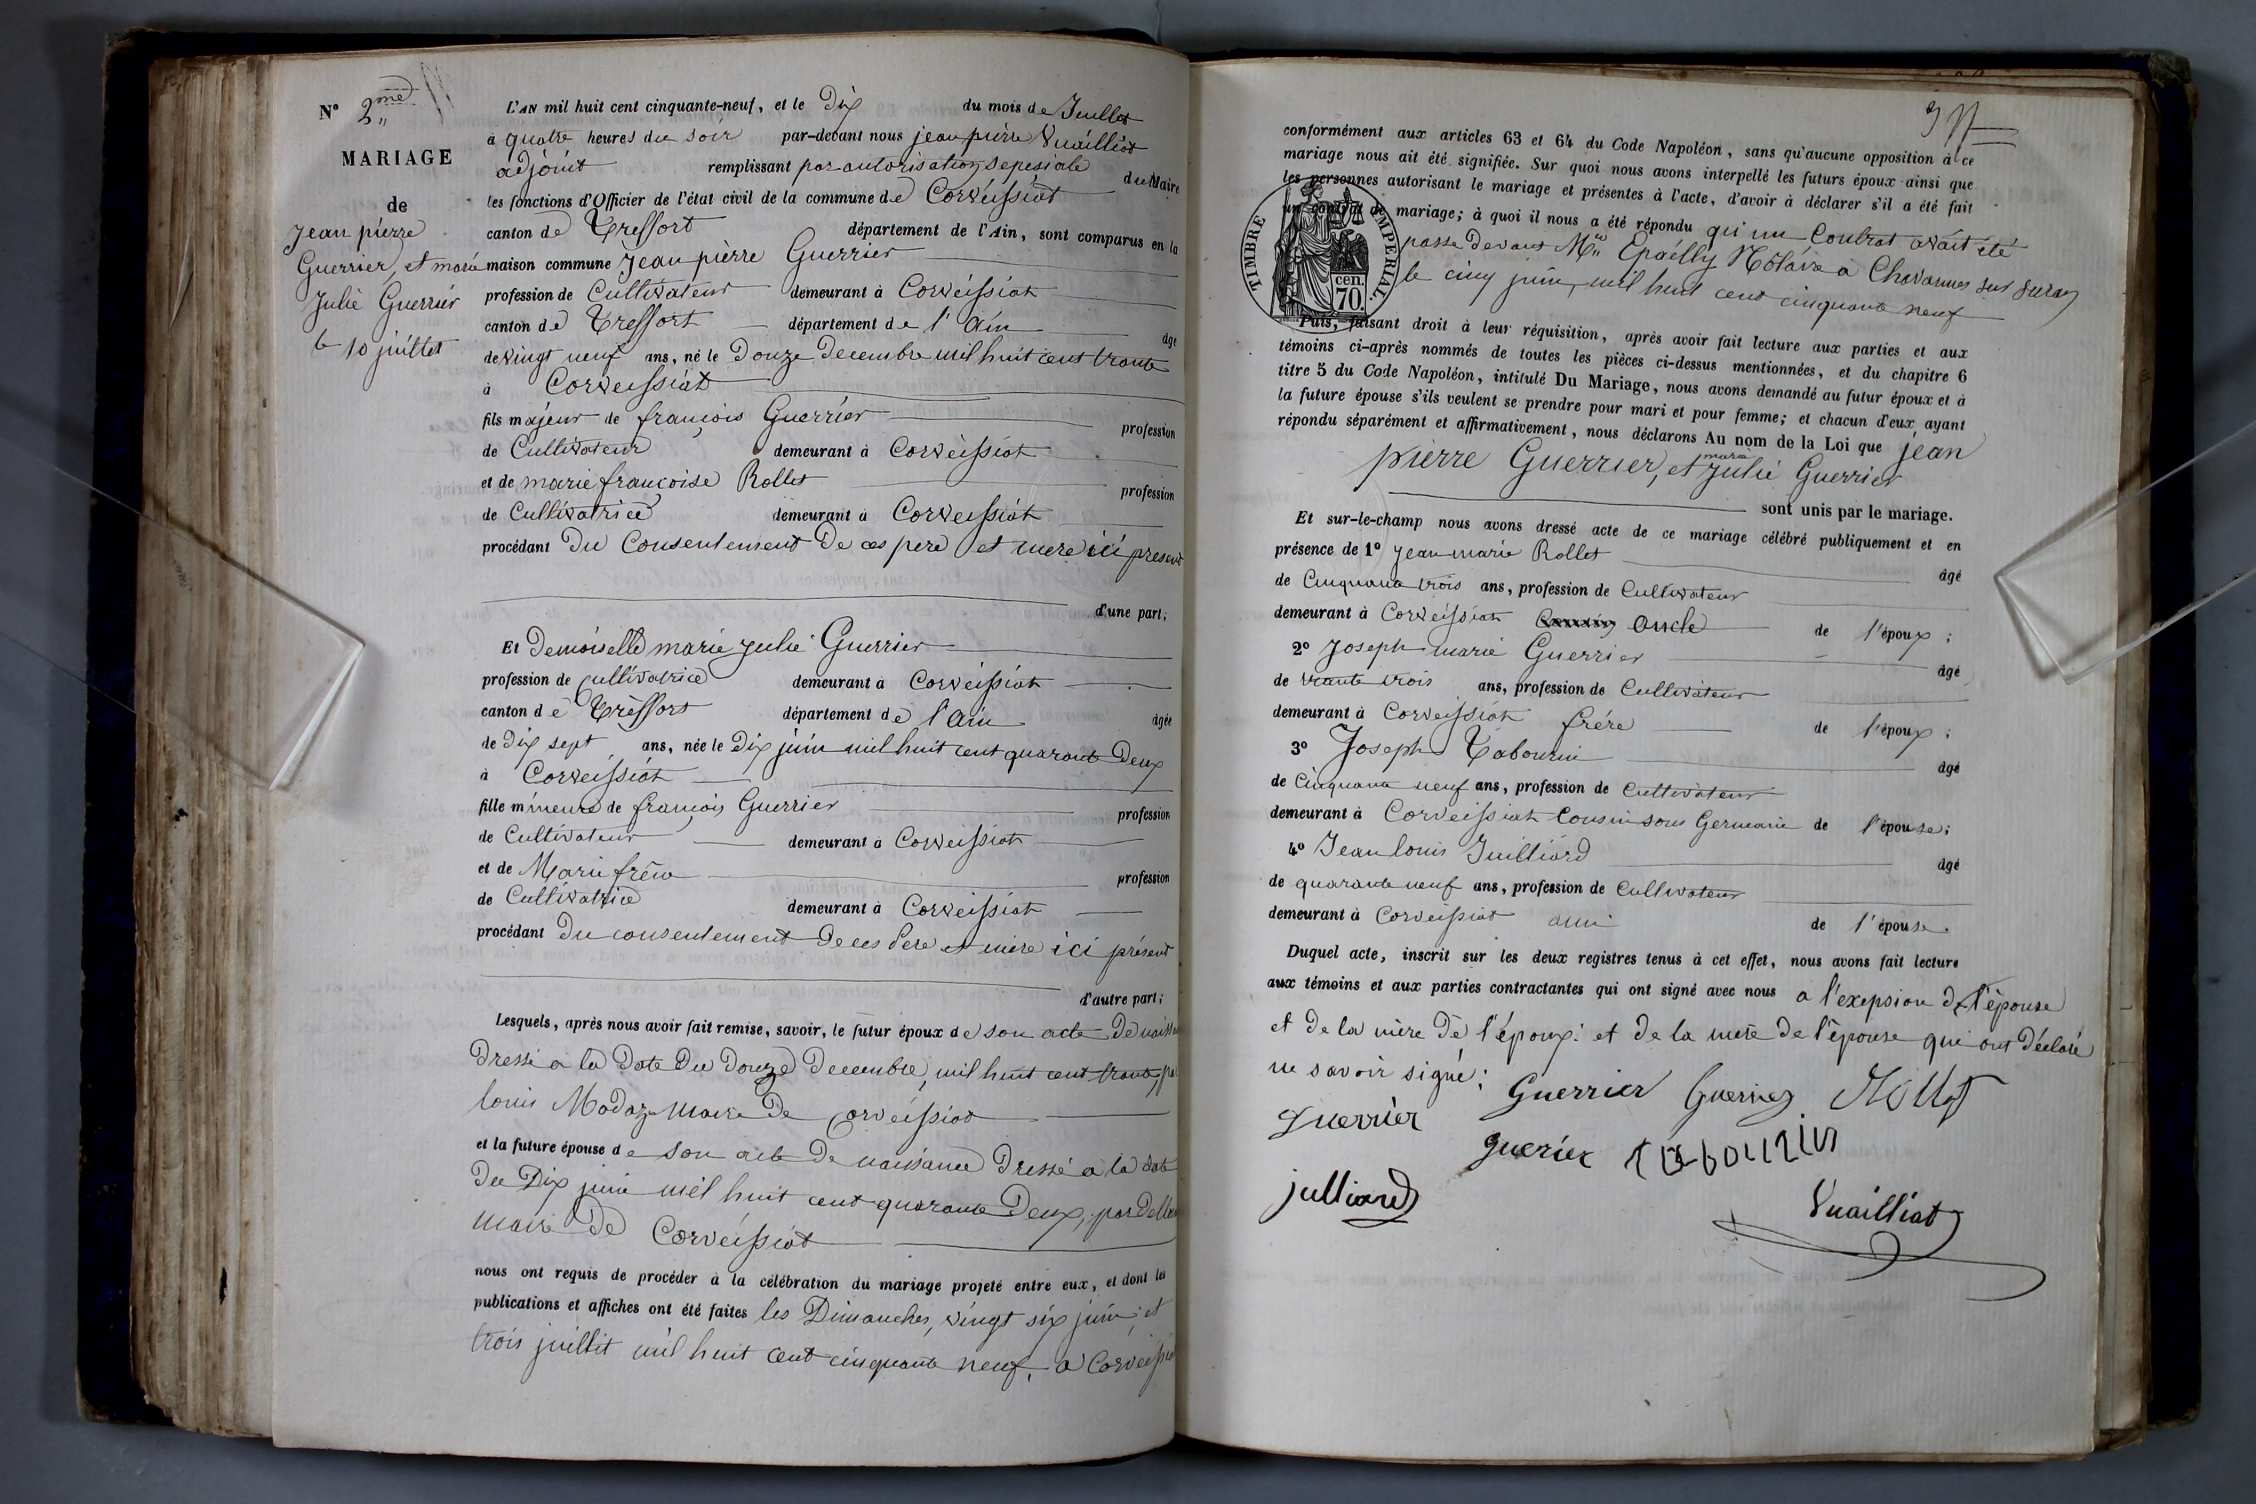 N° 2me
MARIAGE
de
Jean pierre
Guerrier, et marie
Julie Guerrier
le 10 juillet
L'AN mil huit cent cinquante-neuf, et le Dix du mois de Juillet
à quatre heures du soir par-devant nous jean pierre Vuailliat
adjoint remplissant par autorisation sepessiale du Maire
les fonctions d'Officier de l'état civil de la commune de Corveissiat
canton de Treffort département de l'Ain, sont comparus en la
maison commune Jean pierre Guerrier
profession de Cultivateur demeurant à Corveissiat
canton de Treffort département de l'Ain âgé
de vingt neuf ans, né le Douze Decembre mil huit cent trante
à Corveissiat
fils majeur de françois Guerrier profession
de Cultivateur demeurant à Corveissiat
et de marie françoise Rollet profession
de Cultivatrice demeurant à Corveissiat
procédant Du Consentement De ces pere et mere ici present
d'une part;
Et Demoiselle marie julie Guerrier
profession de Cultivatrice demeurant à Corveissiat
canton de Treffort département de l'Ain âgée
de Dix sept ans, née le Dix juin mil huit cent quarante Deux
à Corveissiat
fille mineure de françois Guerrier profession
de Cultivateur demeurant à Corveissiat
et de Marie profession
de Cultivatrice demeurant à Corveissiat
procédant Du consentement De ces Pere et mere ici présent
d'autre part;
Lesquels, après nous avoir fait remise, savoir, le futur époux de son acte De
Dressé a la Date Du Douze Decembre, mil huit cent trante,
louis maire De Corveissiat
et la future épouse de son acte De naissance Dressé a la date
Du Dix juin mil huit cent quarante Deux,
maire De Corveissiat
nous ont requis de procéder à la célébration du mariage projeté entre eux, et dont les
publications et affiches ont été faites les Dimanches, vingt six juin, et
trois juillet mil huit cent cinquante neuf, a Corveissiat
conformément aux articles 63 et 64 du Code Napoléon, sans qu'aucune opposition à ce
mariage nous ait été signifiée. Sur quoi nous avons interpellé les futurs époux ainsi que
les personnes autorisant le mariage et présentes à l'acte, d'avoir à déclarer s'il a été fait
un contrat de mariage; à quoi il nous a été répondu qu'un Contrat avait été
passé Devant Me Epailly Notaire à Chavannes sur Suran
le cinq juin, mil huit cent cinquante neuf
TIMBRE IMPERIAL.
cen.
70.
Puis, faisant droit à leur réquisition, après avoir fait lecture aux parties et aux
témoins ci-après nommés de toutes les pièces ci-dessus mentionnées, et du chapitre 6
titre 5 du Code Napoléon, intitulé Du Mariage, nous avons demandé au futur époux et à
la future épouse s'ils veulent se prendre pour mari et pour femme; et chacun d'eux ayant
répondu séparément et affirmativement, nous déclarons Au nom de la Loi que jean
pierre Guerrier, et marie Julie Guerrier
sont unis par le mariage.
Et sur-le-champ nous avons dressé acte de ce mariage célébré publiquement et en
présence de 1° Jean marie Rollet âgé
de Cinquante trois ans, profession de Cultivateur
demeurant à Corveissiat oncle de l'époux;
2° Joseph marie Guerrier âgé
de trante trois ans, profession de Cultivateur
demeurant à Corveissiat frére de l'époux;
3° Joseph Tabourin âgé
de Cinquante neuf ans, profession de Cultivateur
demeurant à Corveissiat Cousin sous Germain de l'épouse;
4° Jean louis Juilliard âgé
de quarante neuf ans, profession de Cultivateur
demeurant à Corveissiat ami de l'épouse.
Duquel acte, inscrit sur les deux registres tenus à cet effet, nous avons fait lecture
aux témoins et aux parties contractantes qui ont signé avec nous a l'exepsion de l'épouse
et De la mère De l'époux. et De la mere de l'épouse qui ont Déclaré
ne savoir signé:
Guerrier Guerrier Rollet
Guerrier
guerier tabourin
julliard
Vuailliat